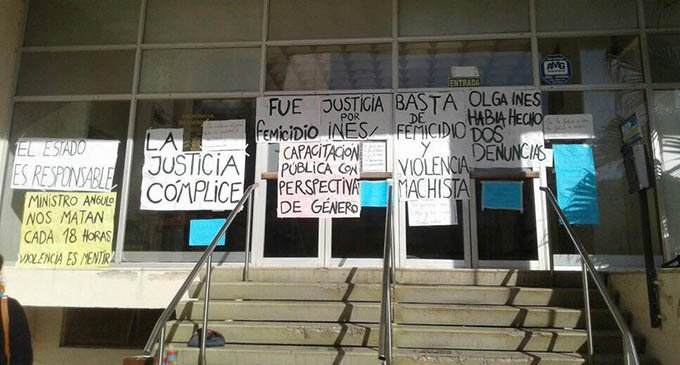 ENTRADA
AMG
¡EL ESTADO
ES RESPONSABLE
MINISTRO ANGULO
NOS MATAN
CADA 18 HORAS
VIOLENCIA ES MENTIR
LA
JUSTICIA
CÓMPLICE
FUE
femicidio
JUSTICIA
POR
INES/
CAPACITACIÓN
PÚBLICA CON
PERSPECTIVA
DE GÉNERO
BASTA
DE
FEMICIDIO
Y
VIOLENCIA
MACHISTA
OLGA INES
HABIA HECHO
DOS
DENUNCIAS